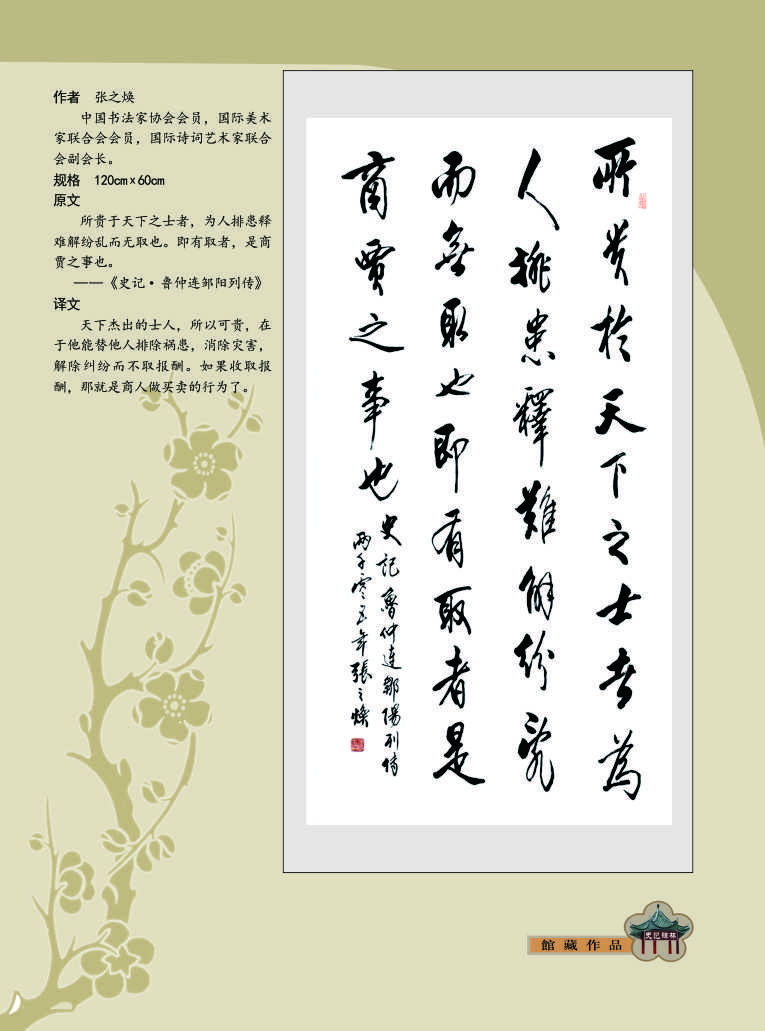 作者 张之焕
中国书法家协会会员，国际美术
家联合会会员，国际诗词艺术家联合
会副会长。
规格 120cm×60cm
原文
所贵于天下之士者，为人排患释
难解纷乱而无取也。即有取者，是商
贾之事也。
——《史记·鲁仲连邹阳列传》
译文
天下杰出的士人，所以可贵，在
于他能替他人排除祸患，消除灾害，
解除纠纷而不取报酬。如果收取报
酬，那就是商人做买卖的行为了。
所贵於天下之士者為
人排患釋難解紛亂
而無取也即有取者是
商賈之事也
史記魯仲連鄒陽列傳
两千零五年張之煥
館藏作品
史记碑林